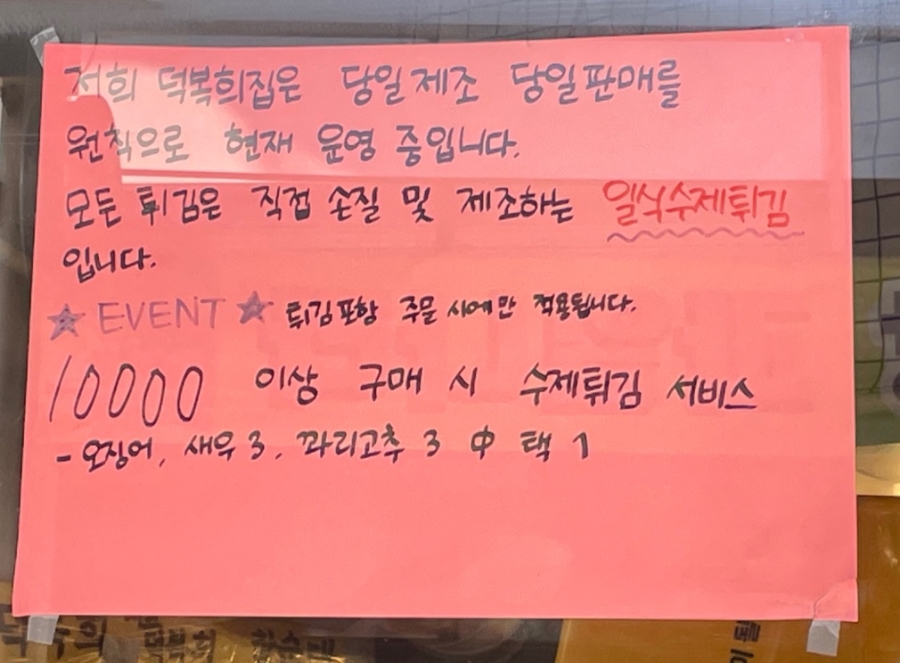 저희 덕복희집은 당일제조 당일판매를
원칙으로 현재 운영 중입니다.
모든 튀김은 직접 손질 및 제조하는 일식수제튀김
입니다.
★ EVENT ★ 튀김포함 주문 시에만 적용됩니다.
10000 이상 구매 시 수제튀김 서비스
- 오징어, 새우 3, 꽈리고추 3 中 택 1